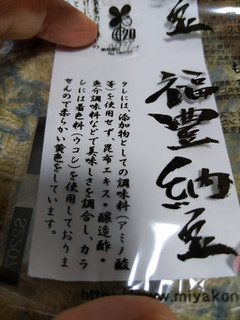 豆
福豊納豆
タレには、添加物としての調味料(アミノ酸
等)を使用せず、昆布エキス・醸造酢・
魚介調味料などで美味しさを調合し、カラ
シには着色料(ウコン)を使用しておりま
せんので柔らかい黄色をしています。
https://www.miyakon